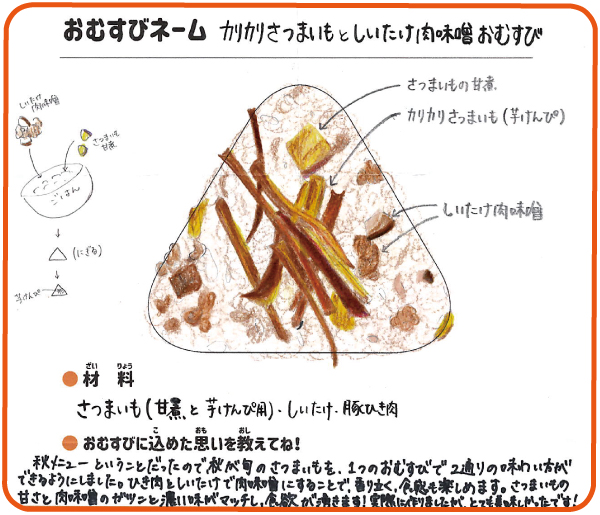 おむすびネーム カリカリさつまいもとしいたけ肉味噌おむすび
さつまいもの甘煮
カリカリさつまいも(芋けんぴ)
しいたけ肉味噌
しいたけ
肉味噌
さつまいも
甘煮
ごはん
(にぎる)
芋けんぴ
ざい りょう
材 料
さつまいも(甘煮と芋けんぴ用)・しいたけ・豚ひき肉
こ おも おし
おむすびに込めた思いを教えてね!
秋メニューということだったので秋が旬のさつまいもを、1つのおむすびで2通りの味わい方が
できるようにしました。ひき肉としいたけで肉味噌にすることで、香り立く、食感も楽しめます。さつまいもの
甘さと肉味噌のガツンと濃い味がマッチし、食欲が湧きます!実際に作りましたが、とても美味しかったです!